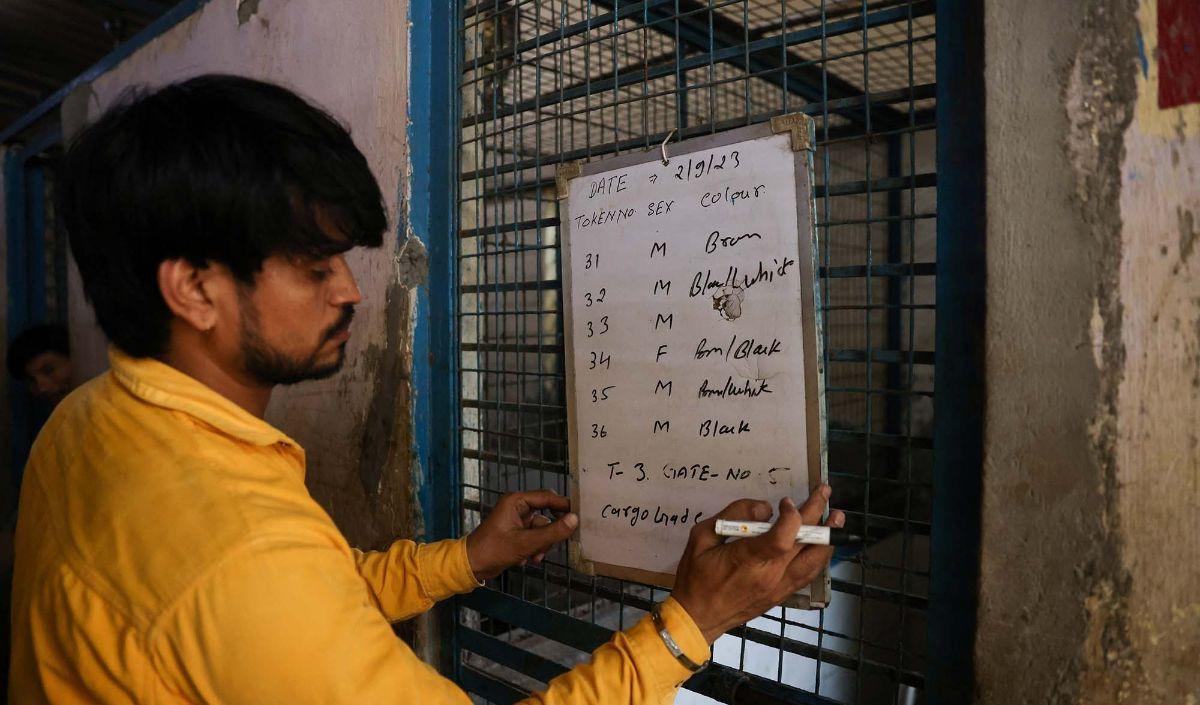 DATE → 2/9/23
TOKEN NO SEX Colour.
31 M Brown
32 M Black/White
33 M
34 F Brn/Black
35 M Brn/White
36 M Black
T-3. GATE-NO 5
Cargo